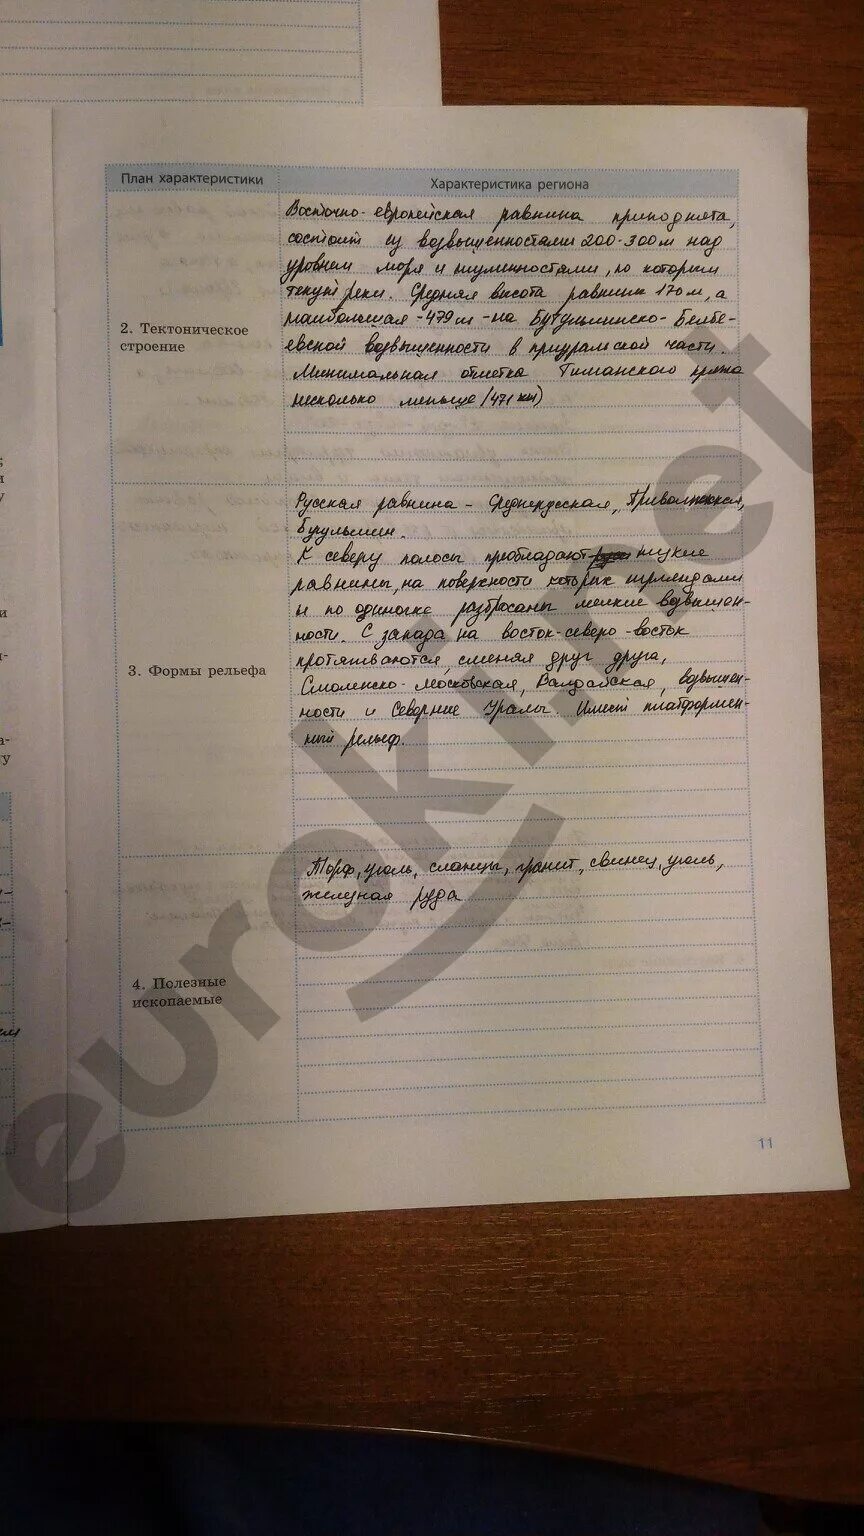 План характеристики
Характеристика региона
2. Тектоническое
строение
Восточно-европейская равнина приподнята,
состоит из возвышенностями 200-300 м над
уровнем моря и низменностями, по которым
текут реки. Средняя высота равнины 170 м, а
наибольшая - 479 м - на Бугульминско-Белебе-
евской возвышенности в приуральской части.
Минимальная отметка Тиманского кряжа
несколько меньше (471 км)
3. Формы рельефа
Русская равнина - Среднерусская, Приволжская,
Бугульмин.
К северу полосы преобладают низкие
равнины, на поверхности которых гирляндами
и по одиночке разбросаны мелкие возвышен-
ности. С запада на восток-северо-восток
протягиваются, сменяя друг друга,
Смоленско-Московская, Валдайская, возвышен-
ности и Северные Увалы. Имеет платформен-
ный рельеф.
4. Полезные
ископаемые
Торф, уголь, сланцы, гранит, свинец, уголь,
железная руда
11
eurokinet